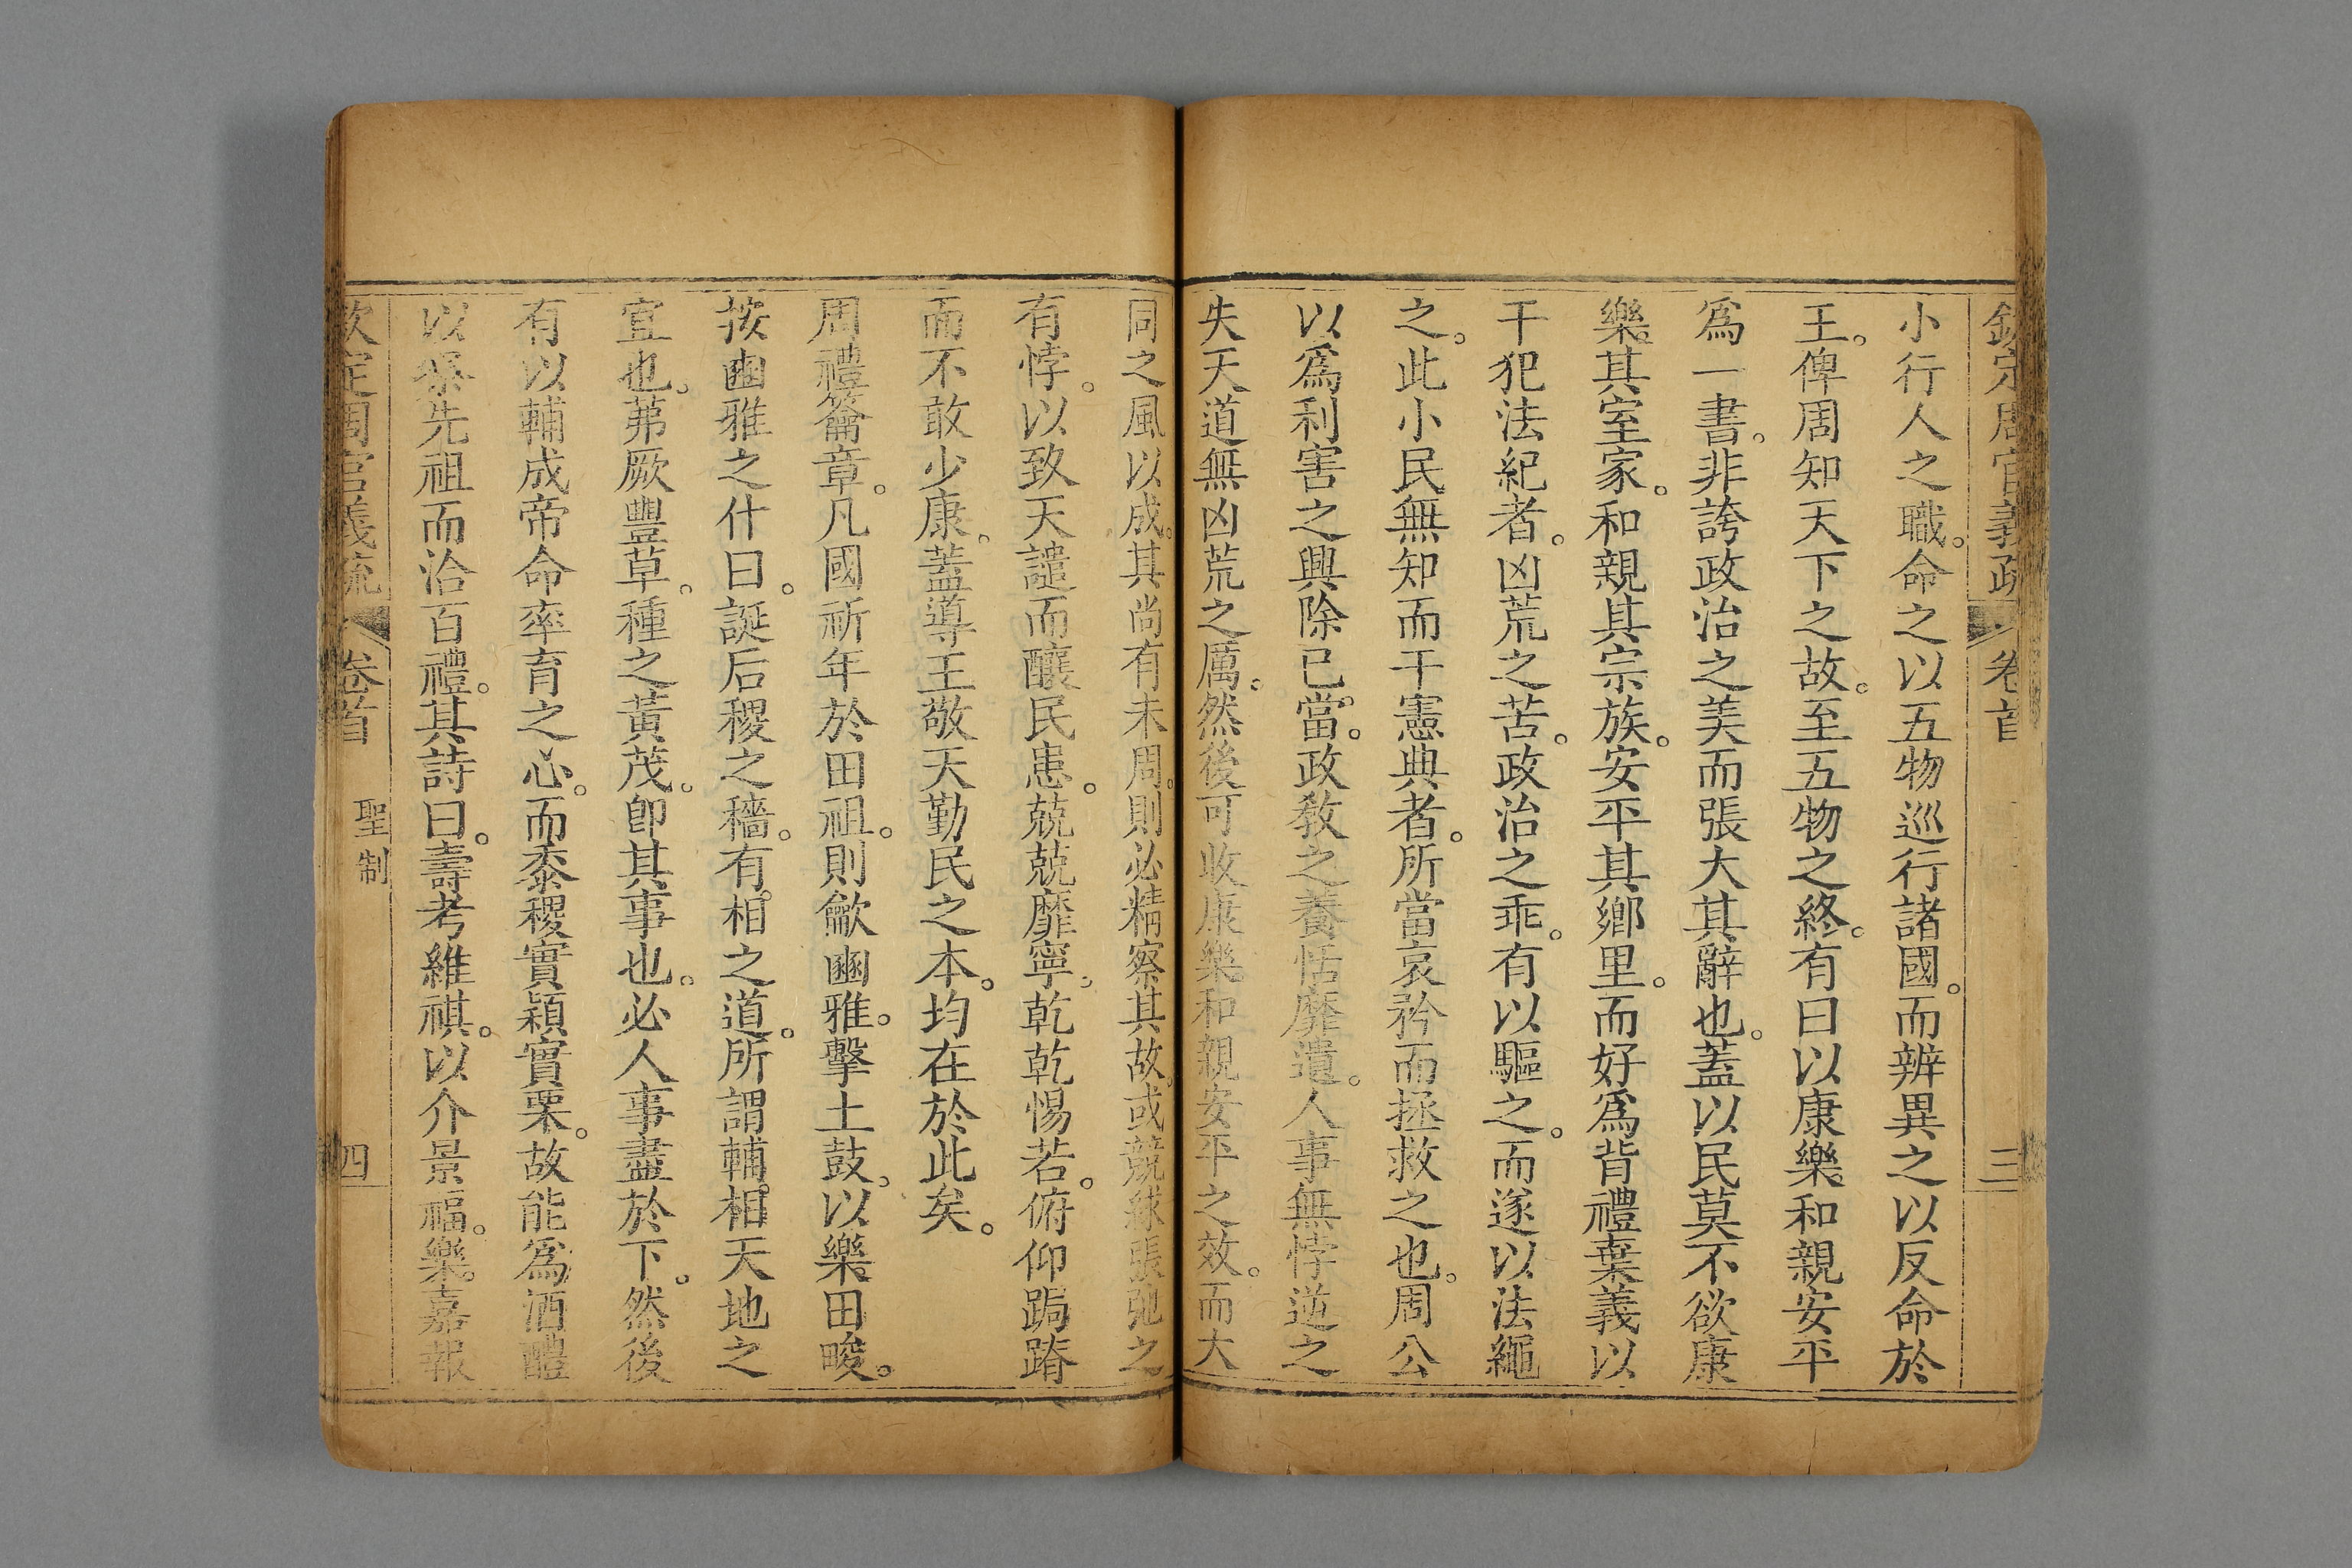 欽定周官義疏 卷首 三
小行人之職。命之以五物巡行諸國。而辨異之以反命於
王。俾周知天下之故。至五物之終。有曰以康樂。和親安平
爲一書。非誇政治之美而張大其辭也。蓋以民莫不欲康
樂。其室家。和親其宗族。安平其鄕里。而好爲背禮棄義以
干犯法紀者。凶荒之苦。政治之乖。有以驅之。而遂以法繩
之。此小民無知而干憲典者。所當哀矜而拯救之也。周公
以爲利害之興除已。當。政敎之養恬靡遺。人事無悖逆之
失天道無凶荒之厲。然後可收康樂和親安平之效。而大
同之風以成。其尚有未周。則必精察其故。或競絿張弛之
有悖。以致天譴而釀民患。兢兢靡寧。乾乾惕若。俯仰跼蹐
而不敢少康。蓋導王敬天勤民之本。均在於此矣。
周禮籥章。凡國祈年於田祖。則龡豳雅。擊土鼓。以樂田畯。
按豳雅之什曰。誕后稷之穡。有。相之道。所謂輔。相天地之
宜也。茀厥豐草。種之黃茂。卽其事也。必人事盡於下。然後
有以輔成帝命率育之心。而黍稷實穎實栗。故能爲酒醴
以先祖而洽百禮。其詩曰。壽考維祺。以介景福。樂。嘉報
欽定周官義疏 卷首 聖制 四